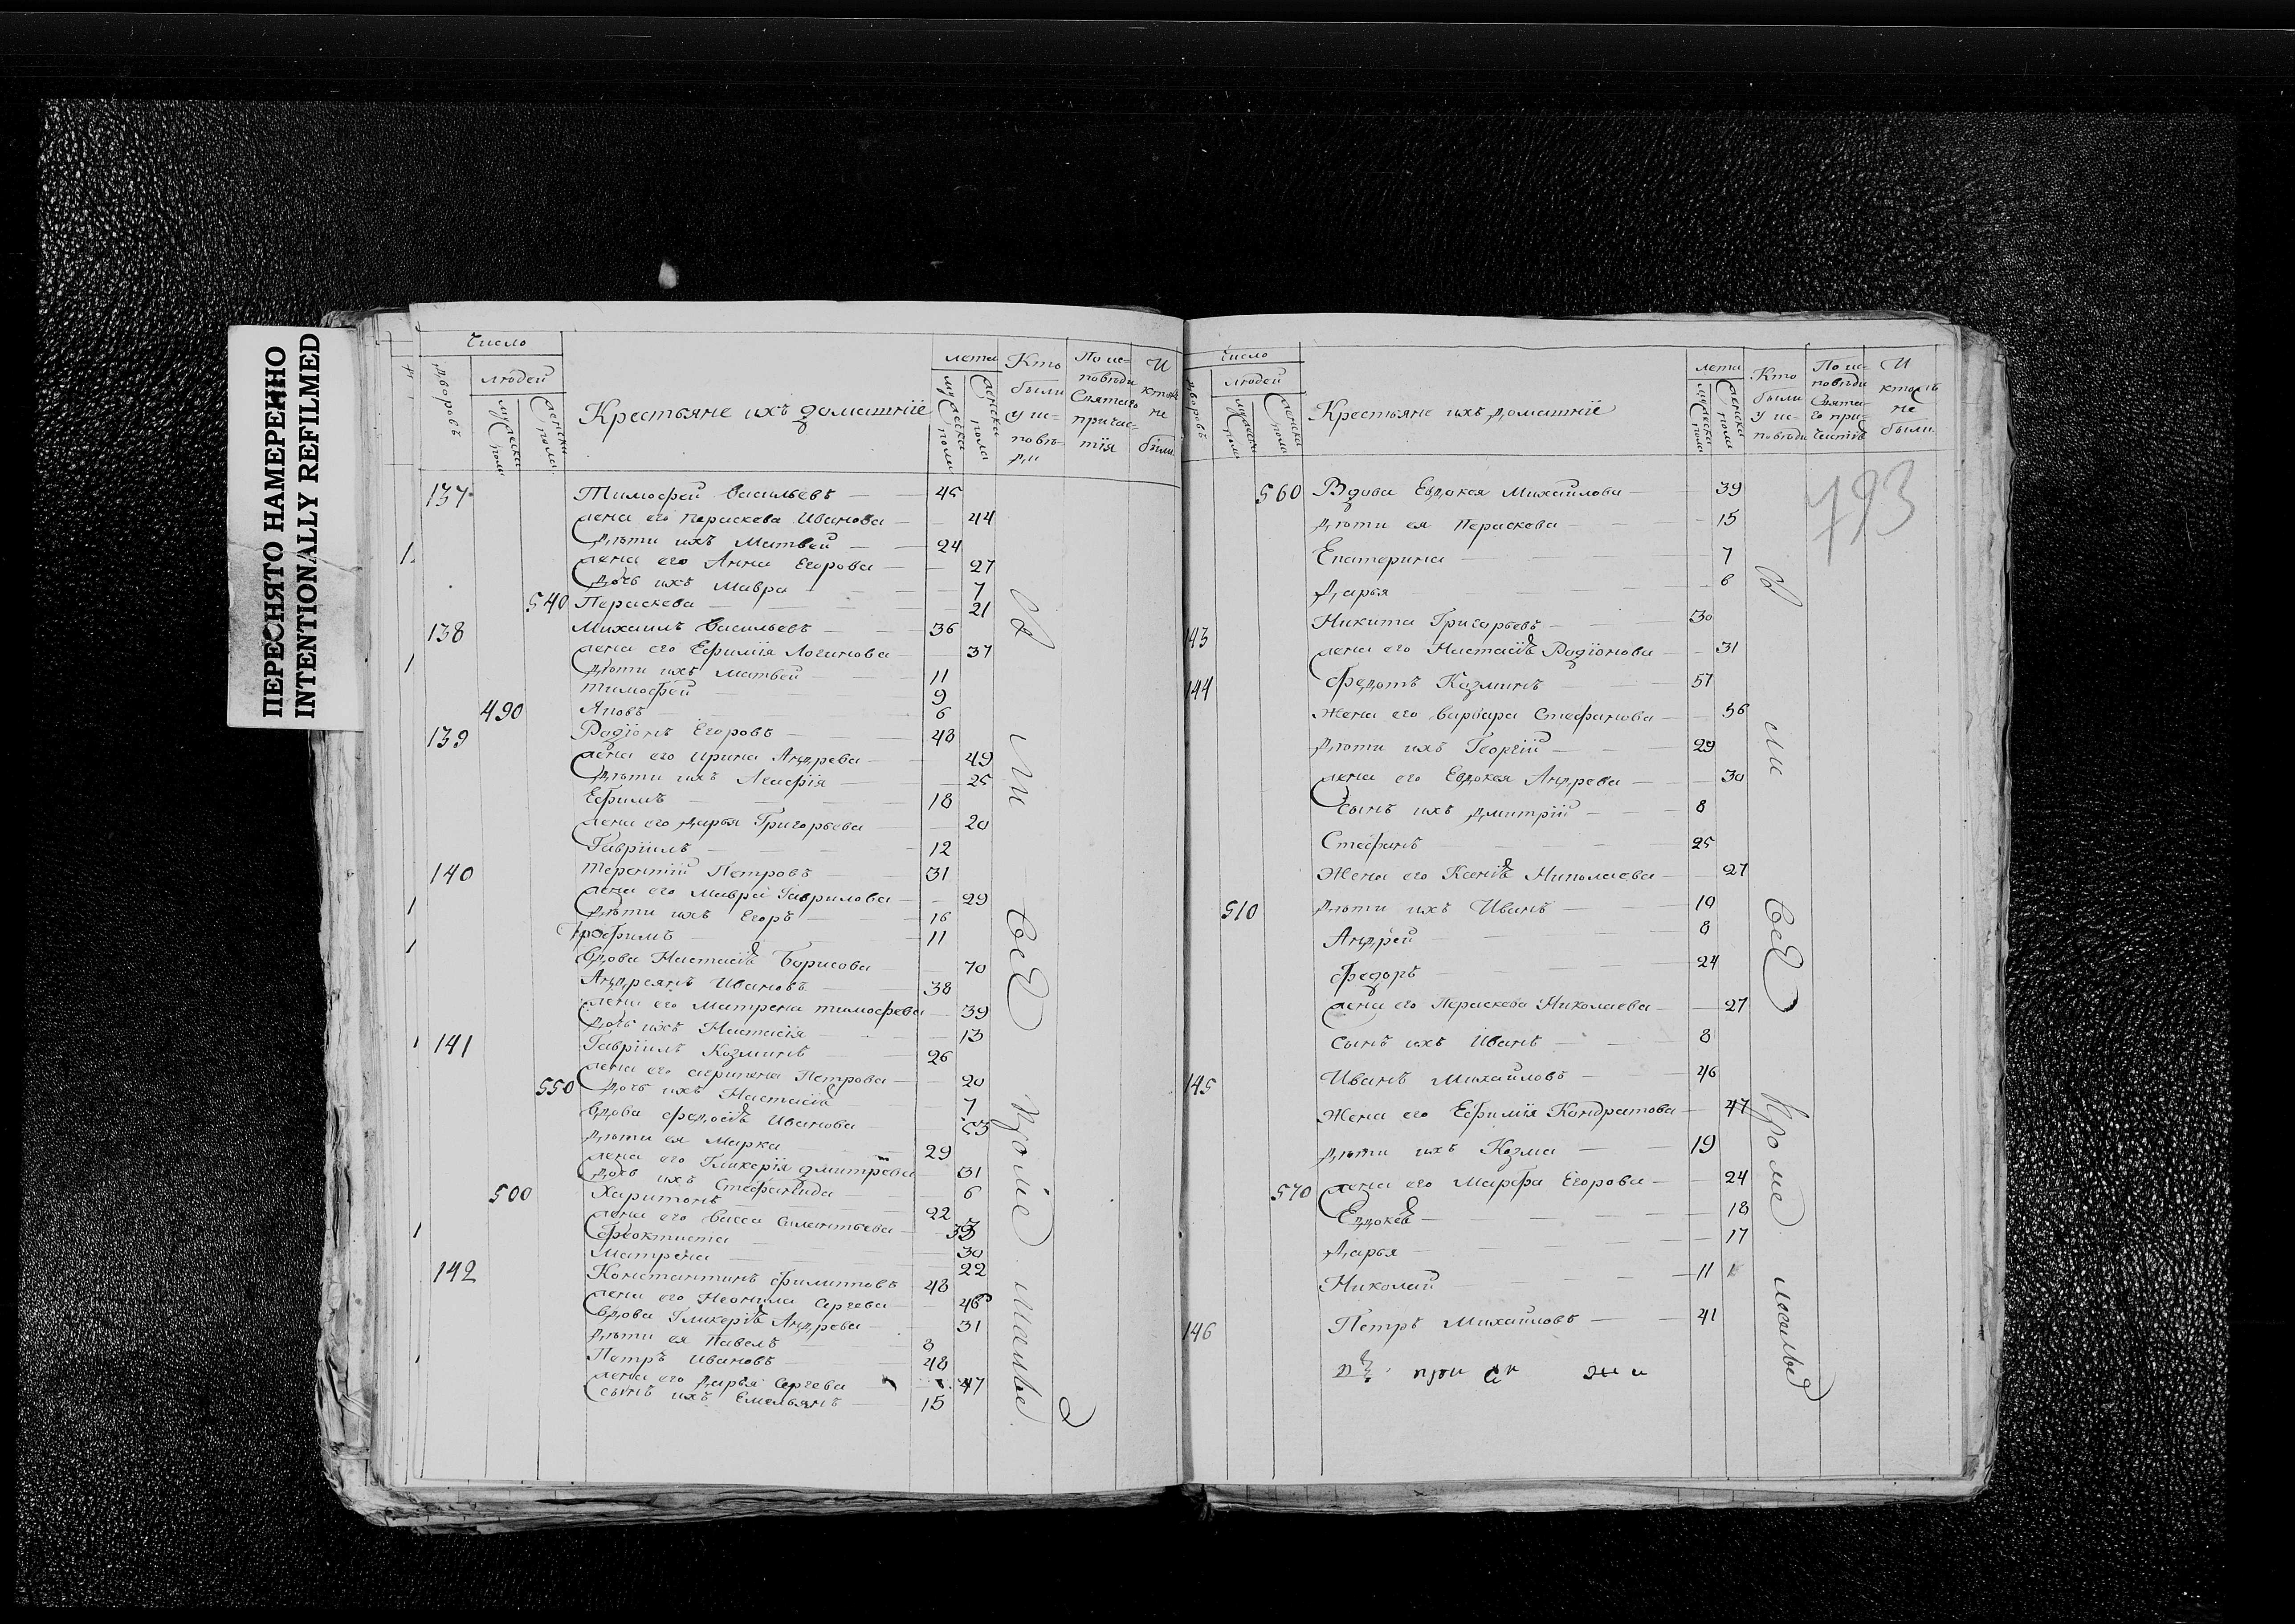 ПЕРЕСНЯТО НАМЕРЕННО
INTENTIONALLY REFILMED
Число
дворовъ
людей
мужеска пола
женска пола
Крестьяне ихъ домашнїе
лета
мужеска пола
женска пола
Кто были у исповѣди
По исповѣди Святаго причастїя
И кто не были
137 Тимофей Васильевъ 45
жена его Параскева Иванова 44
1. Дѣти ихъ Матвей 24
жена его Анна Егорова 27
Дочь ихъ Мавра 7
540 Параскева 21
138 Михаилъ Васильевъ 36
жена его Ефимїя Логинова 37
1 Дѣти ихъ Матвей 11
Тимофей 9
490 6
139 Родїонъ Егоровъ 48
жена его Ирина Андрева 49
Дѣти ихъ Агафїя 25
Ефимъ 18
жена его Дарья Григорьева 20
Гаврїилъ 12
140 Терентїй Петровъ 31
жена его Мавра Гаврилова 29
1 Дѣти ихъ Егоръ 16
Трофимъ 11
1 Вдова Настасїѣ Борисова 70
Андреянъ Ивановъ 38
жена его Матрена Тимофева 39
Дочь ихъ Настасїя 13
1 141 Гаврїилъ Козминъ 26
жена его Акрипена Петрова 20
550 Дочь ихъ Настасїѣ 7
Вдова Федосїѣ Иванова 53
Дѣти ея Марка 29
жена его Гликерїя Дмитрева 31
Дочь ихъ Стефанида 6
500 Харитонъ 22
жена его Васса Силантьева
1 Феоктиста 30
Матрена 22
142 Константинъ Филиповъ 48
жена его Неонила Сергева 46
Вдова Гликерїѣ Андрева 31
Дѣти ея Павелъ 8
Петръ Ивановъ 48
жена его Дарья Сергева 47
сынъ ихъ Емельянъ 15
Были всѣ кроме малые
Число
дворовъ
людей
мужеска пола
женска пола
Крестьяне ихъ домашнїе
лета
мужеска пола
женска пола
Кто были у исповѣди
По исповѣди Святаго причастїя
И кто не были
793
560 Вдова Евдокея Михаилова 39
Дѣти ея Параскева 15
Екатерина 7
Дарья 6
143 Никита Григорьевъ 30
жена его Настасїѣ Родїонова 31
144 Федотъ Козминъ 57
Жена его Варвара Стефанова 56
Дѣти ихъ Георгїй 29
жена его Евдокея Андрева 30
Сынъ ихъ Дмитрїй 8
Стефанъ 25
Жена его Ксенїѣ Николаева 27
510 Дѣти ихъ Иванъ 10
Андрей 8
Федоръ 24
жена его Параскева Николаева 27
Сынъ ихъ Иванъ 8
145 Иванъ Михаиловъ 46
Жена его Ефимїя Кондратова 47
Дѣти ихъ Козма 19
570 жена его Марфа Егорова 24
Евдокеѣ 18
Дарья 17
Николай 11
146 Петръ Михаиловъ 41
Были всѣ кроме малые